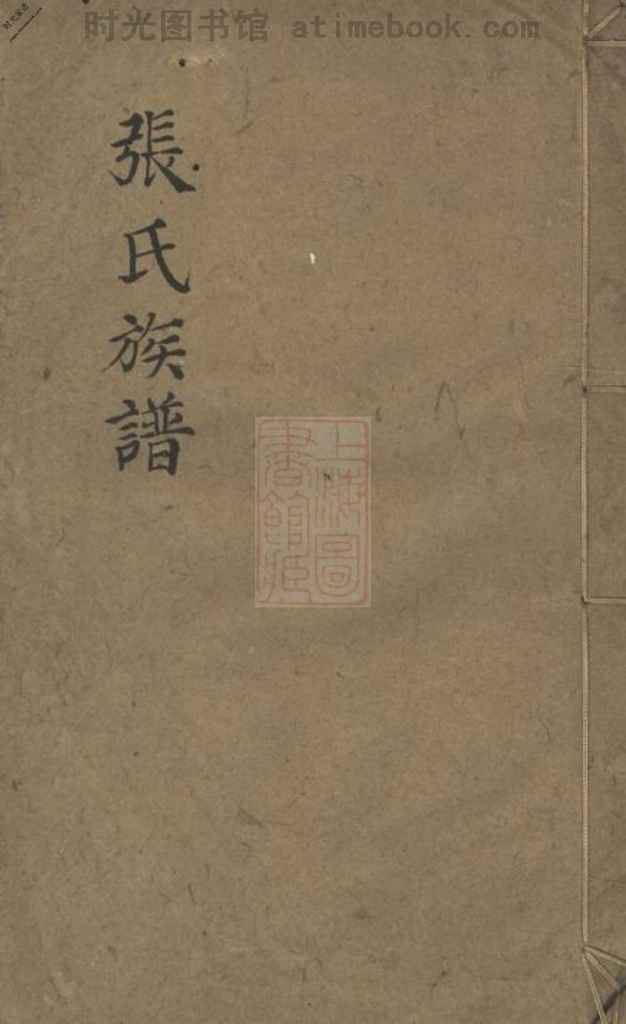 时光图书馆 atimebook.com
張氏族譜
上海圖
書館藏